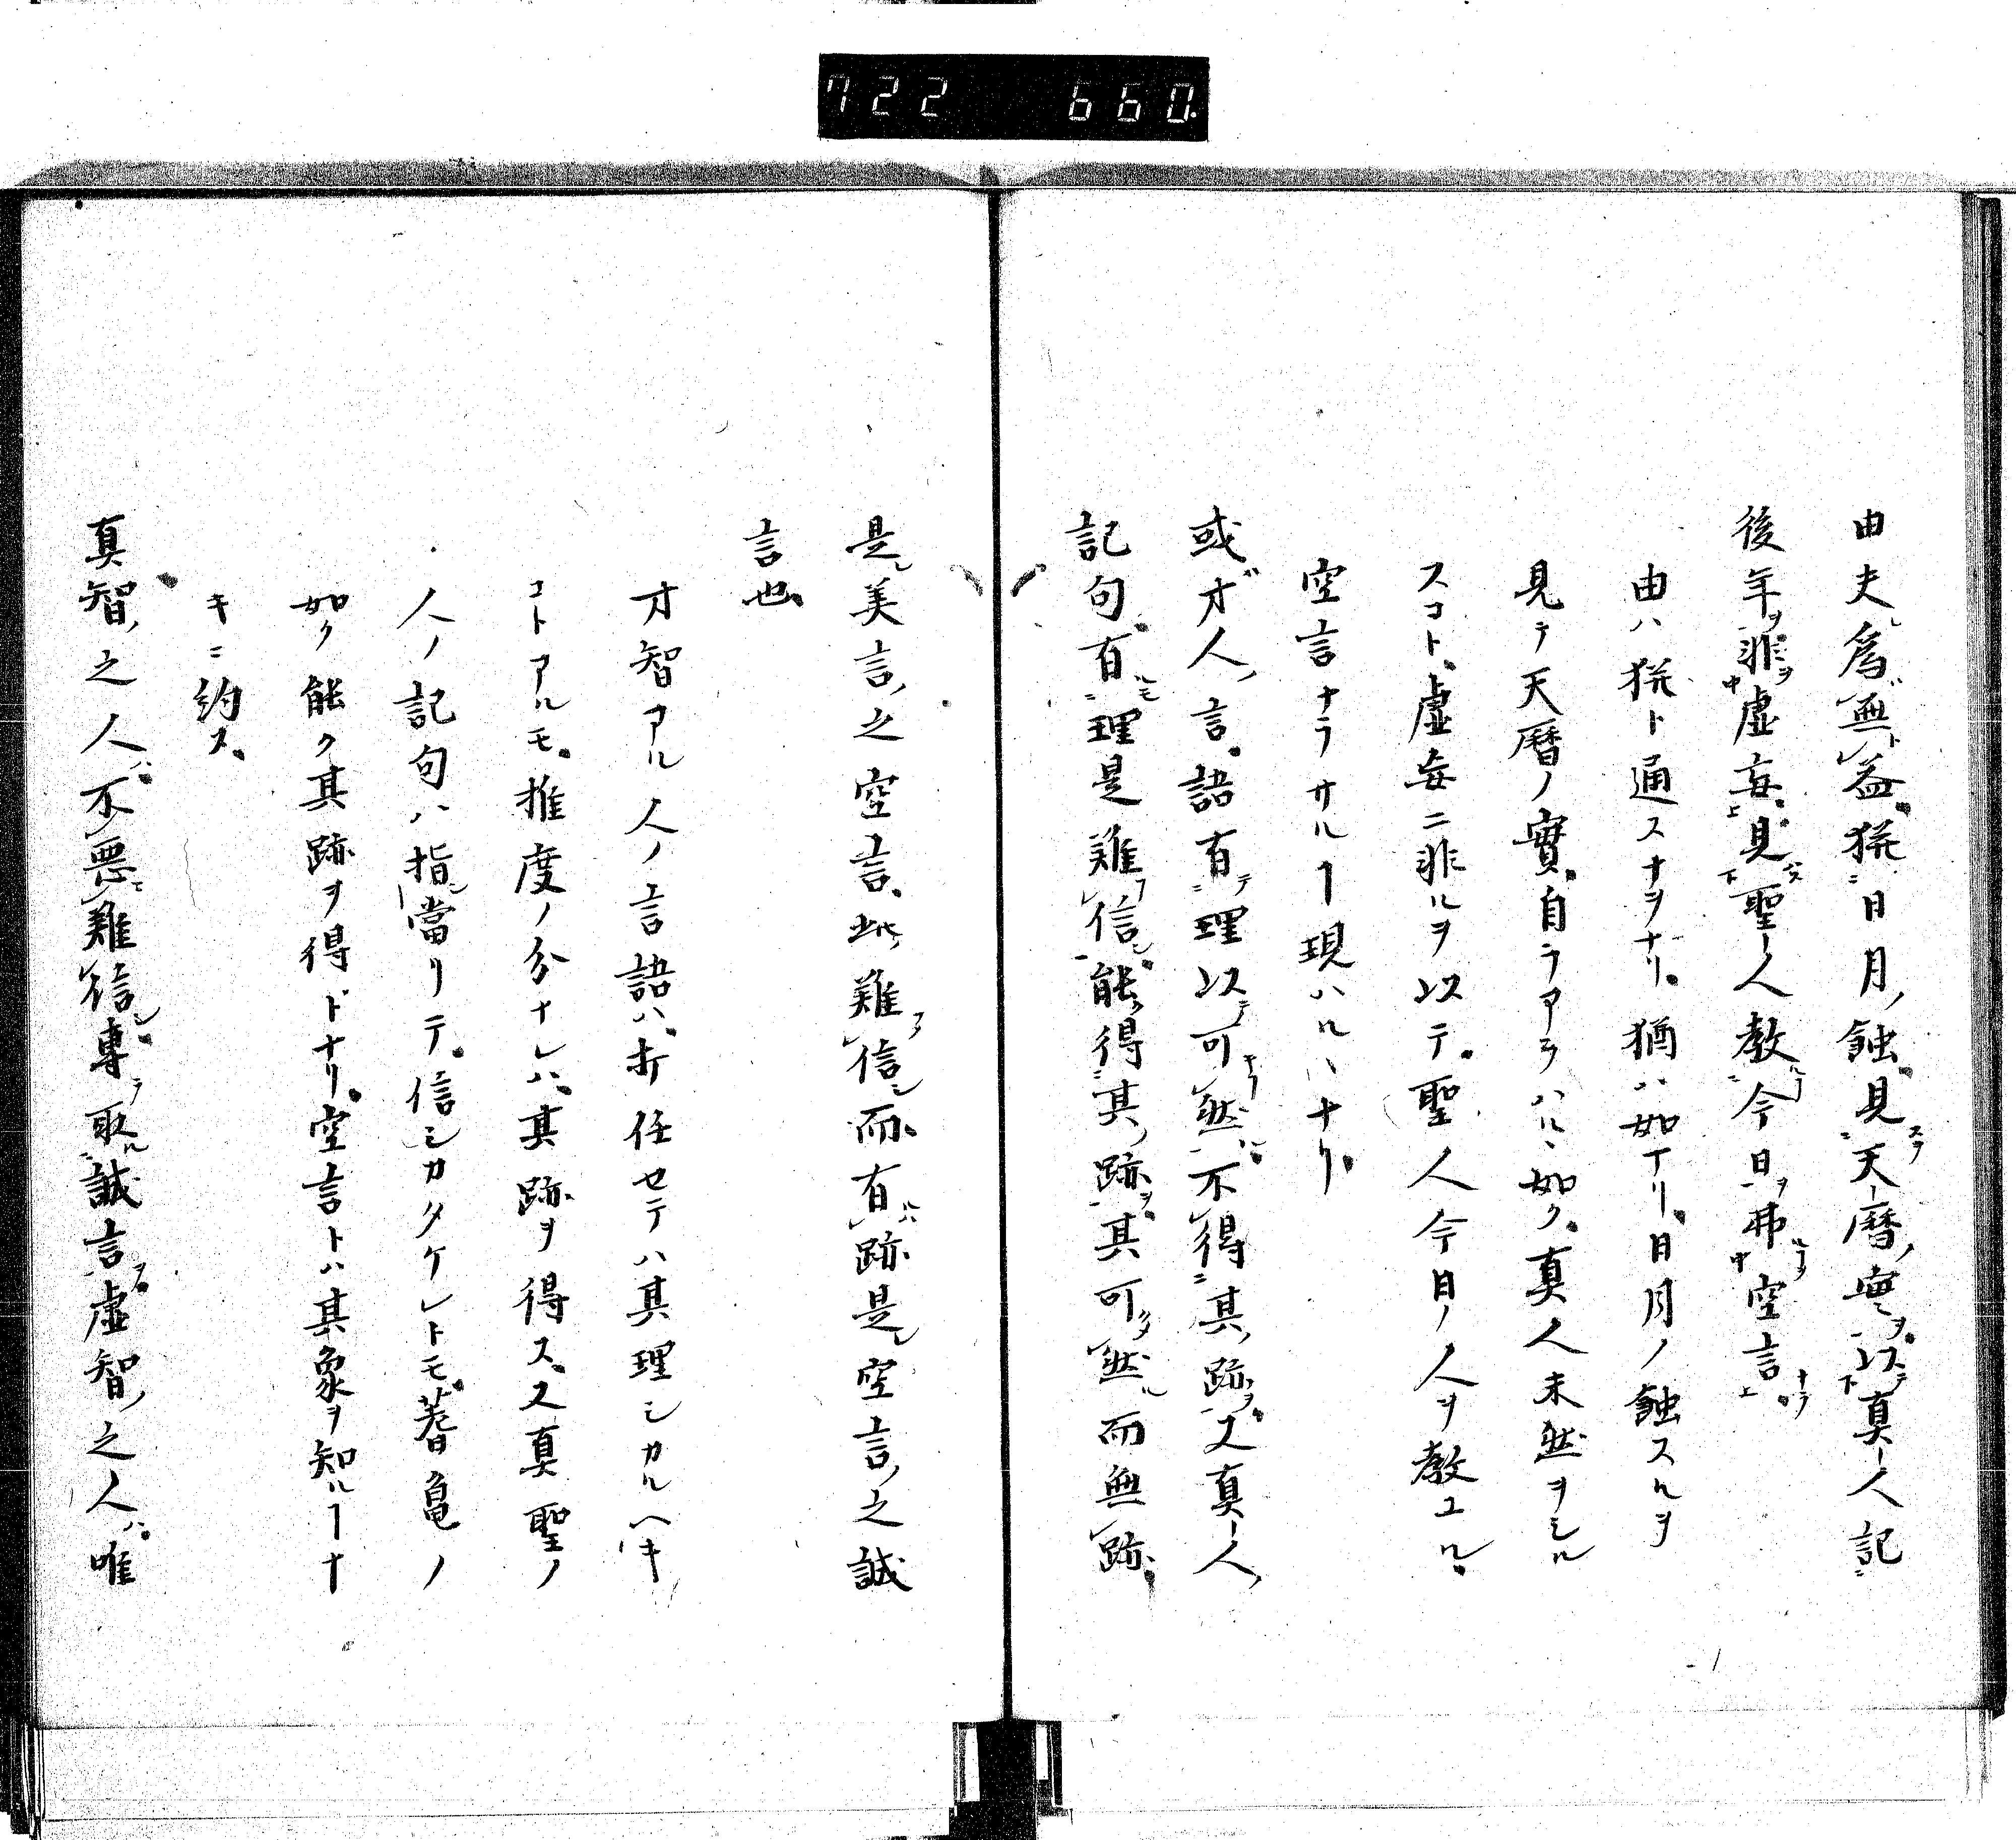 722 660.
由夫為無益。猶日月ノ蝕。見天暦ノ実ヲ。以真人記
後年ヲ非虚妄。見聖人教今日ヲ弗空言
由ハ猶ト通スナヲナリ。猶ハ如ナリ。日月ノ蝕スルヲ
見テ天暦ノ實。自ラアラハルヽ如ク。真人未然ヲシル
スコト、虚妄ニ非ルヲ以テ。聖人今日ノ人ヲ教ユル。
空言ナラサルヿ現ハルヽナリ。
或才人ノ言。語有理以可然不得其ノ跡ヲ。又真人ノ
記句。有理是難信。能得其ノ跡ヲ。其可然而無跡。
是美言ノ之空言。此難信而有跡是空言ノ之誠
言也。
才智アル人ノ言語ハ。打任セテハ其理シカルヘキ
コトアルモ。推度ノ分ナレハ。其跡ヲ得ス。又真聖ノ
人ノ記句ハ指當リテ。信シカタケレトモ。蓍亀ノ
如ク能ク其跡ヲ得ドナリ。空言トハ其象ヲ知ルヿナ
キニ約ス。
真智ノ之人ハ。不悪難信。專取誠言虚智ノ之人ハ。唯